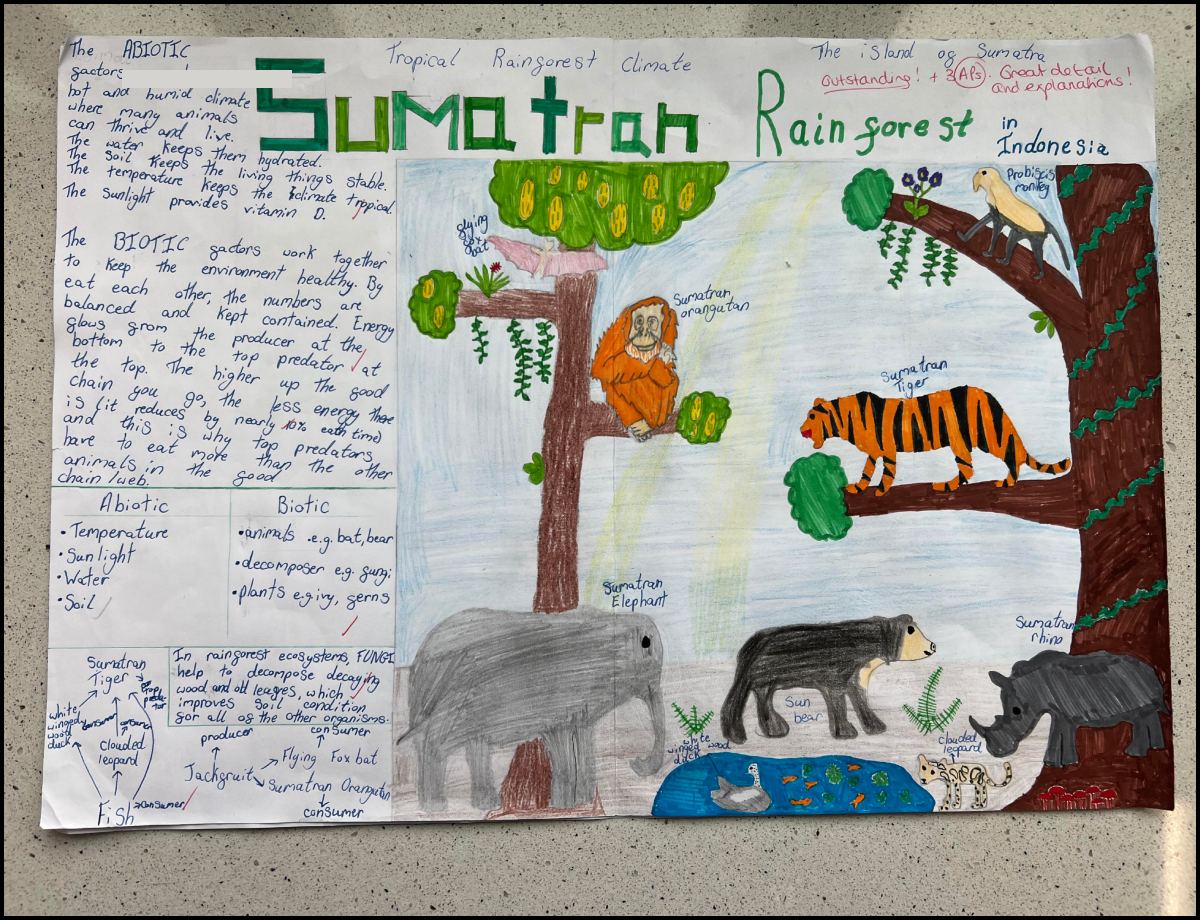 The ABIOTIC
factors
hot and humid climate
where many animals
can thrive and live.
The water keeps them hydrated.
The soil keeps the living things stable.
The temperature keeps the climate tropical.
The sunlight provides vitamin D.
The BIOTIC factors work together
to keep the environment healthy. By
eat each other, the numbers are
balanced and kept contained. Energy
flows from the producer at the
bottom to the top predator at
the top. The higher up the food
chain you go, the less energy there
is (it reduces by nearly 10% each time)
and this is why top predators
have to eat more than the other
animals in the food
chain/web.
Abiotic
• Temperature
• Sunlight
• Water
• Soil
Biotic
• animals e.g. bat, bear
• decomposer e.g. fungi
• plants e.g ivy, ferns
Sumatran
Tiger
top
preda-
tor
white
winged
wood
duck
consumer
clouded
leopard
Fish
consumer
In rainforest ecosystems, FUNGI
help to decompose decaying
wood and old leaves, which
improves soil condition
for all of the other organisms.
producer
consumer
Jackfruit
Flying Fox bat
Sumatran Orangutan
consumer
Tropical Rainforest Climate
The island of Sumatra
Outstanding! + 3 APs. Great detail
and explanations!
Sumatran Rainforest
in
Indonesia
flying
fox
bat
Sumatran
orangutan
Probiscis
monkey
Sumatran
Tiger
Sumatran
Elephant
Sun
bear
Sumatran
rhino
white
winged wood
duck
clouded
leopard